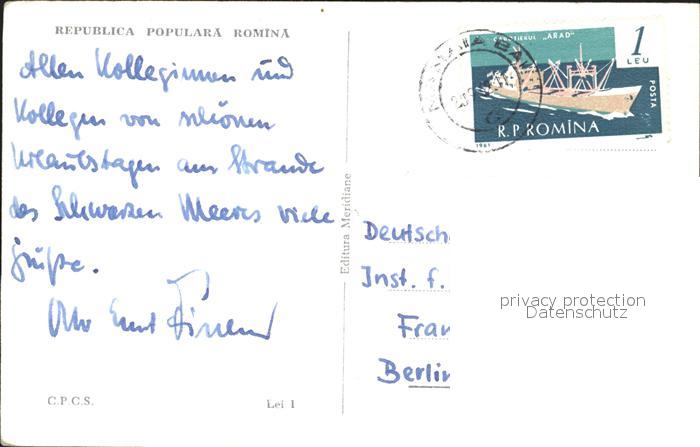 REPUBLICA POPULARĂ ROMÎNĂ
Allen Kolleginnen und
Kollegen von schönen
Urlaubstagen am Strande
des Schwarzen Meeres viele
Grüße.
Otto Ernst
C.P.C.S.
Lei 1
Editura Meridiane
CARGOUL "ARAD"
1
LEU
POSTA
R.P.ROMÎNA
1961
Deutsch
Inst. f.
Fran
Berlin
privacy protection
Datenschutz